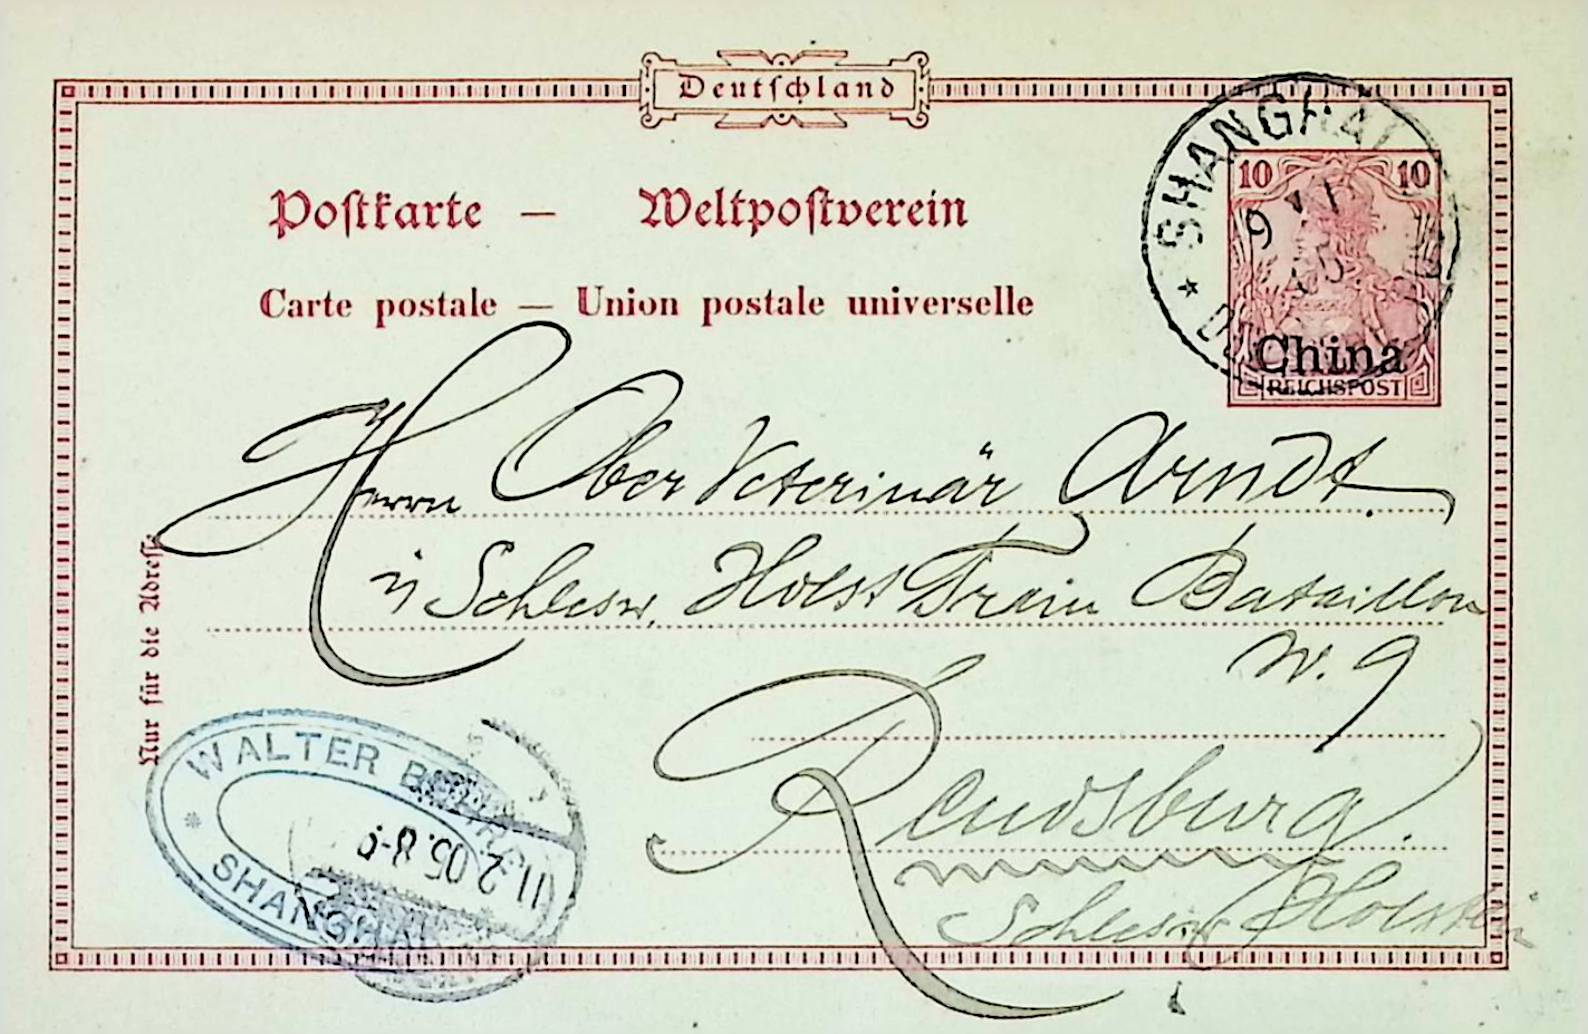 Deutschland
Postkarte — Weltpostverein
Carte postale — Union postale universelle
SHANGHAI
10 10
9
China
REICHSPOST
Herrn Ober Veterinär Arndt
in Schlesw. Holst Train Bataillon
N. 9
Rendsburg.
Schlesw Holstein
Nur für die Adresse
WALTER
SHANGHAI
11.2.05.8-